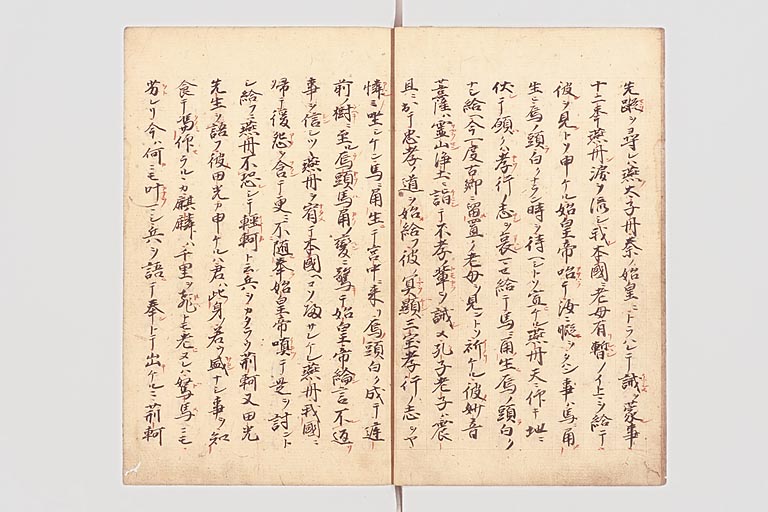 先蹤ヲ尋レハ燕太子丹秦ノ始皇ニトラハレテ誡ヲ蒙事
十二年燕丹涙ヲ流シテ我本國ニ老母有暫ノイトマヲ給テ
彼ヲ見トソ申ケル始皇帝咍テ汝ニ暇ヲタン事ハ馬ニ角
生ヒ烏ノ頭ノ白クナラン時ヲ待ヘシトソ宣ケル燕丹天ニ仰キ地ニ
伏テ願クハ孝行ノ志ヲ哀ヒ給テ馬ニ角生烏ノ頭白ク
ナシ給ヘ今一度古郷ニ留置シ老母ヲ見ントソ祈ケル彼妙音
菩薩ハ霊山浄土ニ詣テ不孝ノ輩ヲ誡メ孔子老子ハ震
旦ニ出テ忠孝ノ道ヲ始給フ彼ノ冥顕三宝孝行ノ志ヲヤ
憐ミ坐シケン馬ニ角生テ宮中ニ来リ烏頭白ク成テ庭
前ノ樹ニ至ル烏頭馬角ノ変ニ驚テ始皇帝綸言不返
事ヲ信シツヽ燕丹ヲ宥テ本國ヘコソ返サレケレ燕丹我國ニ
帰テ後怨ヲ含テ更ニ不随奉始皇帝嗔テ是ヲ討ント
シ給フニ燕丹不恐シテ軽軻ト云兵ヲカタラフ荊軻又田光
先生ヲ語フ彼田光カ申ケルハ君ハ此身ノ若ク盛ナシ事ヲ知
食テ馮仰ラルヽカ麒麟ハ千里ヲ飛トモ老ヌレハ駑馬ニモ
劣レリ今ハ何ニモ叶マシ兵ヲ語テ奉トテ出ケルニ荊軻